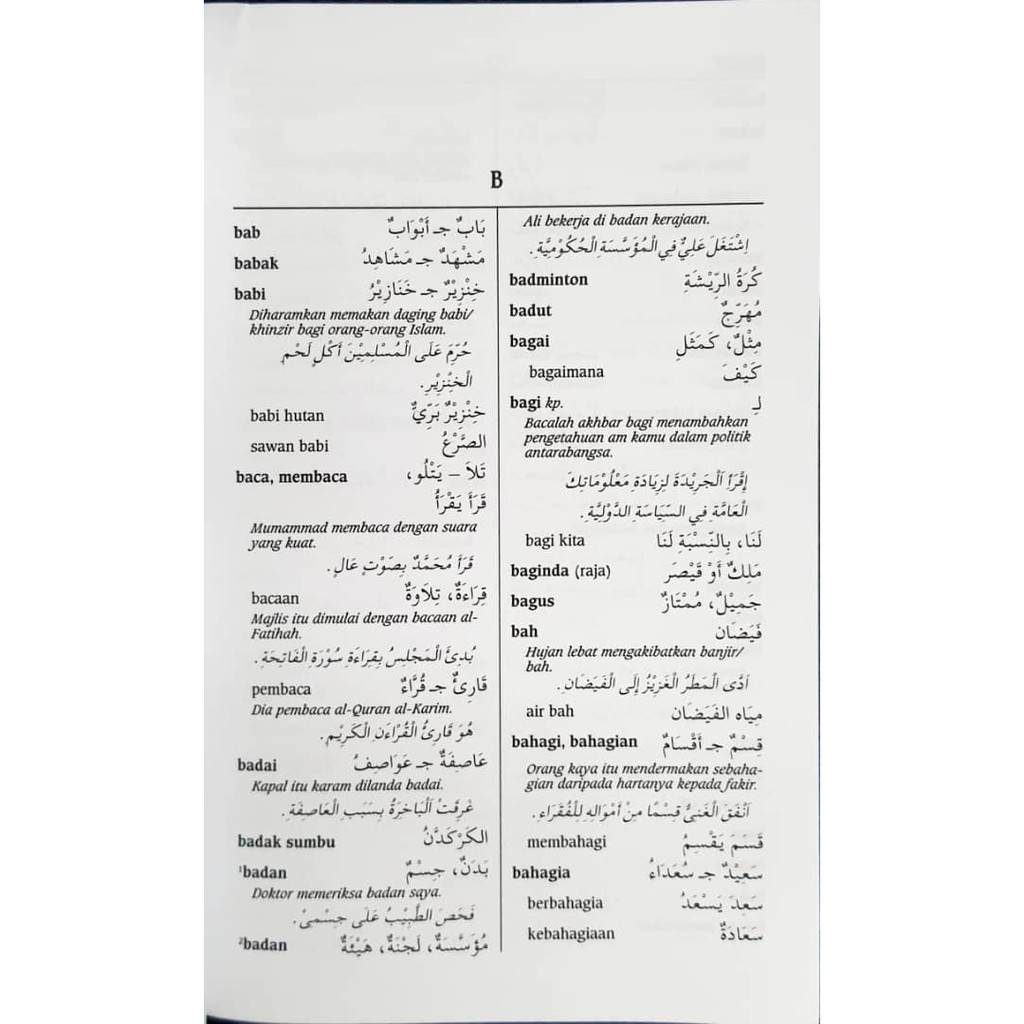 B
bab بَابٌ جـ أَبْوَابٌ
babak مَشْهَدٌ جـ مَشَاهِدُ
babi خِنْزِيْرٌ جـ خَنَازِيْرُ
Diharamkan memakan daging babi/
khinzir bagi orang-orang Islam.
حُرِّمَ عَلَى الْمُسْلِمِيْنَ أَكْلِ لَحْمِ
الْخِنْزِيْرِ.
babi hutan خِنْزِيْرٌ بَرِّيٌّ
sawan babi الصَّرْعُ
baca, membaca تَلاَ – يَتْلُو،
قَرَأَ يَقْرَأُ
Mumammad membaca dengan suara
yang kuat.
قَرَأَ مُحَمَّدٌ بِصَوْتٍ عَالٍ.
bacaan قِرَاءَةٌ، تِلَاوَةٌ
Majlis itu dimulai dengan bacaan al-
Fatihah.
بُدِئَ الْمَجْلِسُ بِقِرَاءَةِ سُوْرَةِ الْفَاتِحَةِ.
pembaca قَارِئٌ جـ قُرَّاءٌ
Dia pembaca al-Quran al-Karim.
هُوَ قَارِئُ الْقُرْاَءنِ الْكَرِيْمِ.
badai عَاصِفَةٌ جـ عَوَاصِفُ
Kapal itu karam dilanda badai.
غَرِقَتْ اَلْبَاخِرَةُ بِسَبَبِ الْعَاصِفَةِ.
badak sumbu الكَرْكَدَّنُ
¹badan بَدَنٌ، جِسْمٌ
Doktor memeriksa badan saya.
فَحَصَ الطَّبِيْبُ عَلَى جِسْمِيْ.
²badan مُؤَسَّسَةٌ، لَجْنَةٌ، هَيْئَةٌ
Ali bekerja di badan kerajaan.
اِشْتَغَلَ عَلِيٌّ فِي الْمُؤَسَّسَةِ الْحُكُوْمِيَّةِ.
badminton كُرَةُ الرِّيْشَةِ
badut مُهَرِّجٌ
bagai مِثْلٌ، كَمَثَلِ
bagaimana كَيْفَ
bagi kp. لِـ
Bacalah akhbar bagi menambahkan
pengetahuan am kamu dalam politik
antarabangsa.
إِقْرَأِ اَلْجَرِيْدَةَ لِزِيَادَةِ مَعْلُوْمَاتِكَ
الْعَامَّةِ فِي السِّيَاسَةِ الدَّوْلِيَّةِ.
bagi kita لَنَا، بِالنِّسْبَةِ لَنَا
baginda (raja) مَلِكٌ أَوْ قَيْصَر
bagus جَمِيْلٌ، مُمْتَازٌ
bah فَيَضَان
Hujan lebat mengakibatkan banjir/
bah.
اَدَّى الْمَطَرُ الْغَزِيْزُ إِلَى الْفَيَضَانِ.
air bah مِيَاه الفَيَضَان
bahagi, bahagian قِسْمٌ جـ أَقْسَامٌ
Orang kaya itu mendermakan sebaha-
gian daripada hartanya kepada fakir.
اَنْفَقَ الْغَنِيُّ قِسْمًا مِنْ أَمْوَالِهِ لِلْفُقَرَاءِ.
membahagi قَسَمَ يَقْسِمُ
bahagia سَعِيْدٌ جـ سُعَدَاءُ
berbahagia سَعِدَ يَسْعَدُ
kebahagiaan سَعَادَةٌ